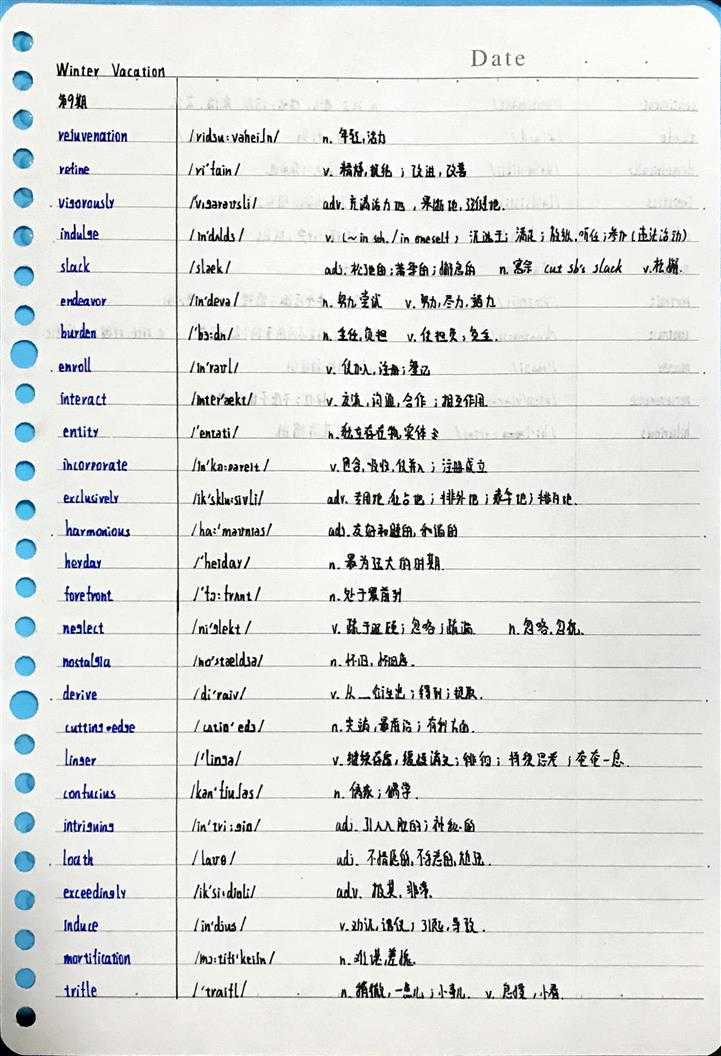 Date
Winter Vacation
第9期
rejuvenation /ridʒu:vəneiʃn/ n. 年轻,活力
refine /ri'fain/ v. 精炼,提纯;改进,改善
vigorously /vigərəʊsli/ adv. 充满活力地,果断地,
indulge /in'dʌldʒ/ v. (~in sth./in oneself) 沉迷于;满足;放纵,听任;参加(违法活动)
slack /slæk/ adj. 松弛的;萧条的;懈怠的 n. cut sb's slack v. 松懈.
endeavor /in'devə/ n. 努力,尝试 v. 努力,尽力,
burden /'bɜ:dn/ n. 责任,负担 v. 使担负,
enroll /in'rəʊl/ v. 使加入,注册;登记
interact /ɪntər'ækt/ v. 交流,沟通,合作;相互作用
entity /'entəti/ n. 独立存在物,实体
incorporate /in'kɔ:pəreit/ v. 包含,吸收,使并入;注册成立
exclusively /ik'sklu:sivli/ adv. 专用地,独占地;排外地;
harmonious /hɑ:'məʊniəs/ adj. 友好和睦的,和谐的
heyday /'heiday/ n. 最为强大的时期
forefront /'fɔ:frʌnt/ n. 处于最前列
neglect /ni'glekt/ v. 疏于照顾;忽略;疏漏 n. 忽略,忽视.
nostalgia /no'stældʒə/ n. 怀旧,怀旧感.
derive /di'raiv/ v. 从…衍生出;得到;提取.
cutting-edge n. 尖端,最前沿;有利方面.
linger /'lingə/ v. 继续存留,缓慢消失;徘徊;持续思考;奄奄一息.
confucius /kən'fju:ʃəs/ n. 儒家;儒学.
intriguing /in'tri:giŋ/ adj. 引人入胜的;神秘的
loath /ləʊθ/ adj. 不情愿的,不乐意的,
exceedingly /ik'si:diŋli/ adv. 极其,非常
induce /in'djus/ v. 劝说,诱使;引起,导致.
mortification /mɔ:tifi'keiʃn/ n. 难堪,羞愧
trifle /'traifl/ n. 稍微,一点儿;小事儿 v. 怠慢,小看.